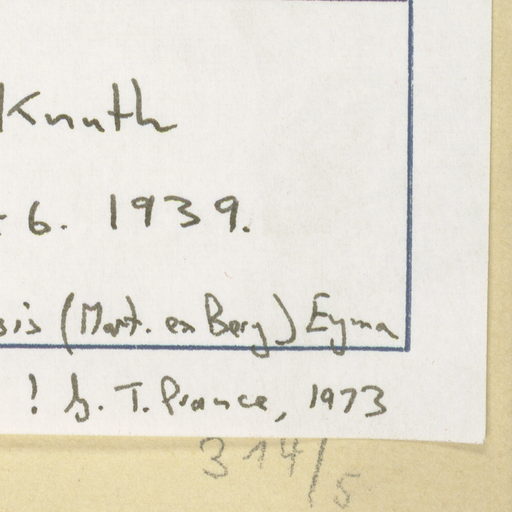 Knuth
6. 1939.
sis (Mart. ex Berg) Eyma
! G. T. Prance, 1973
314/5